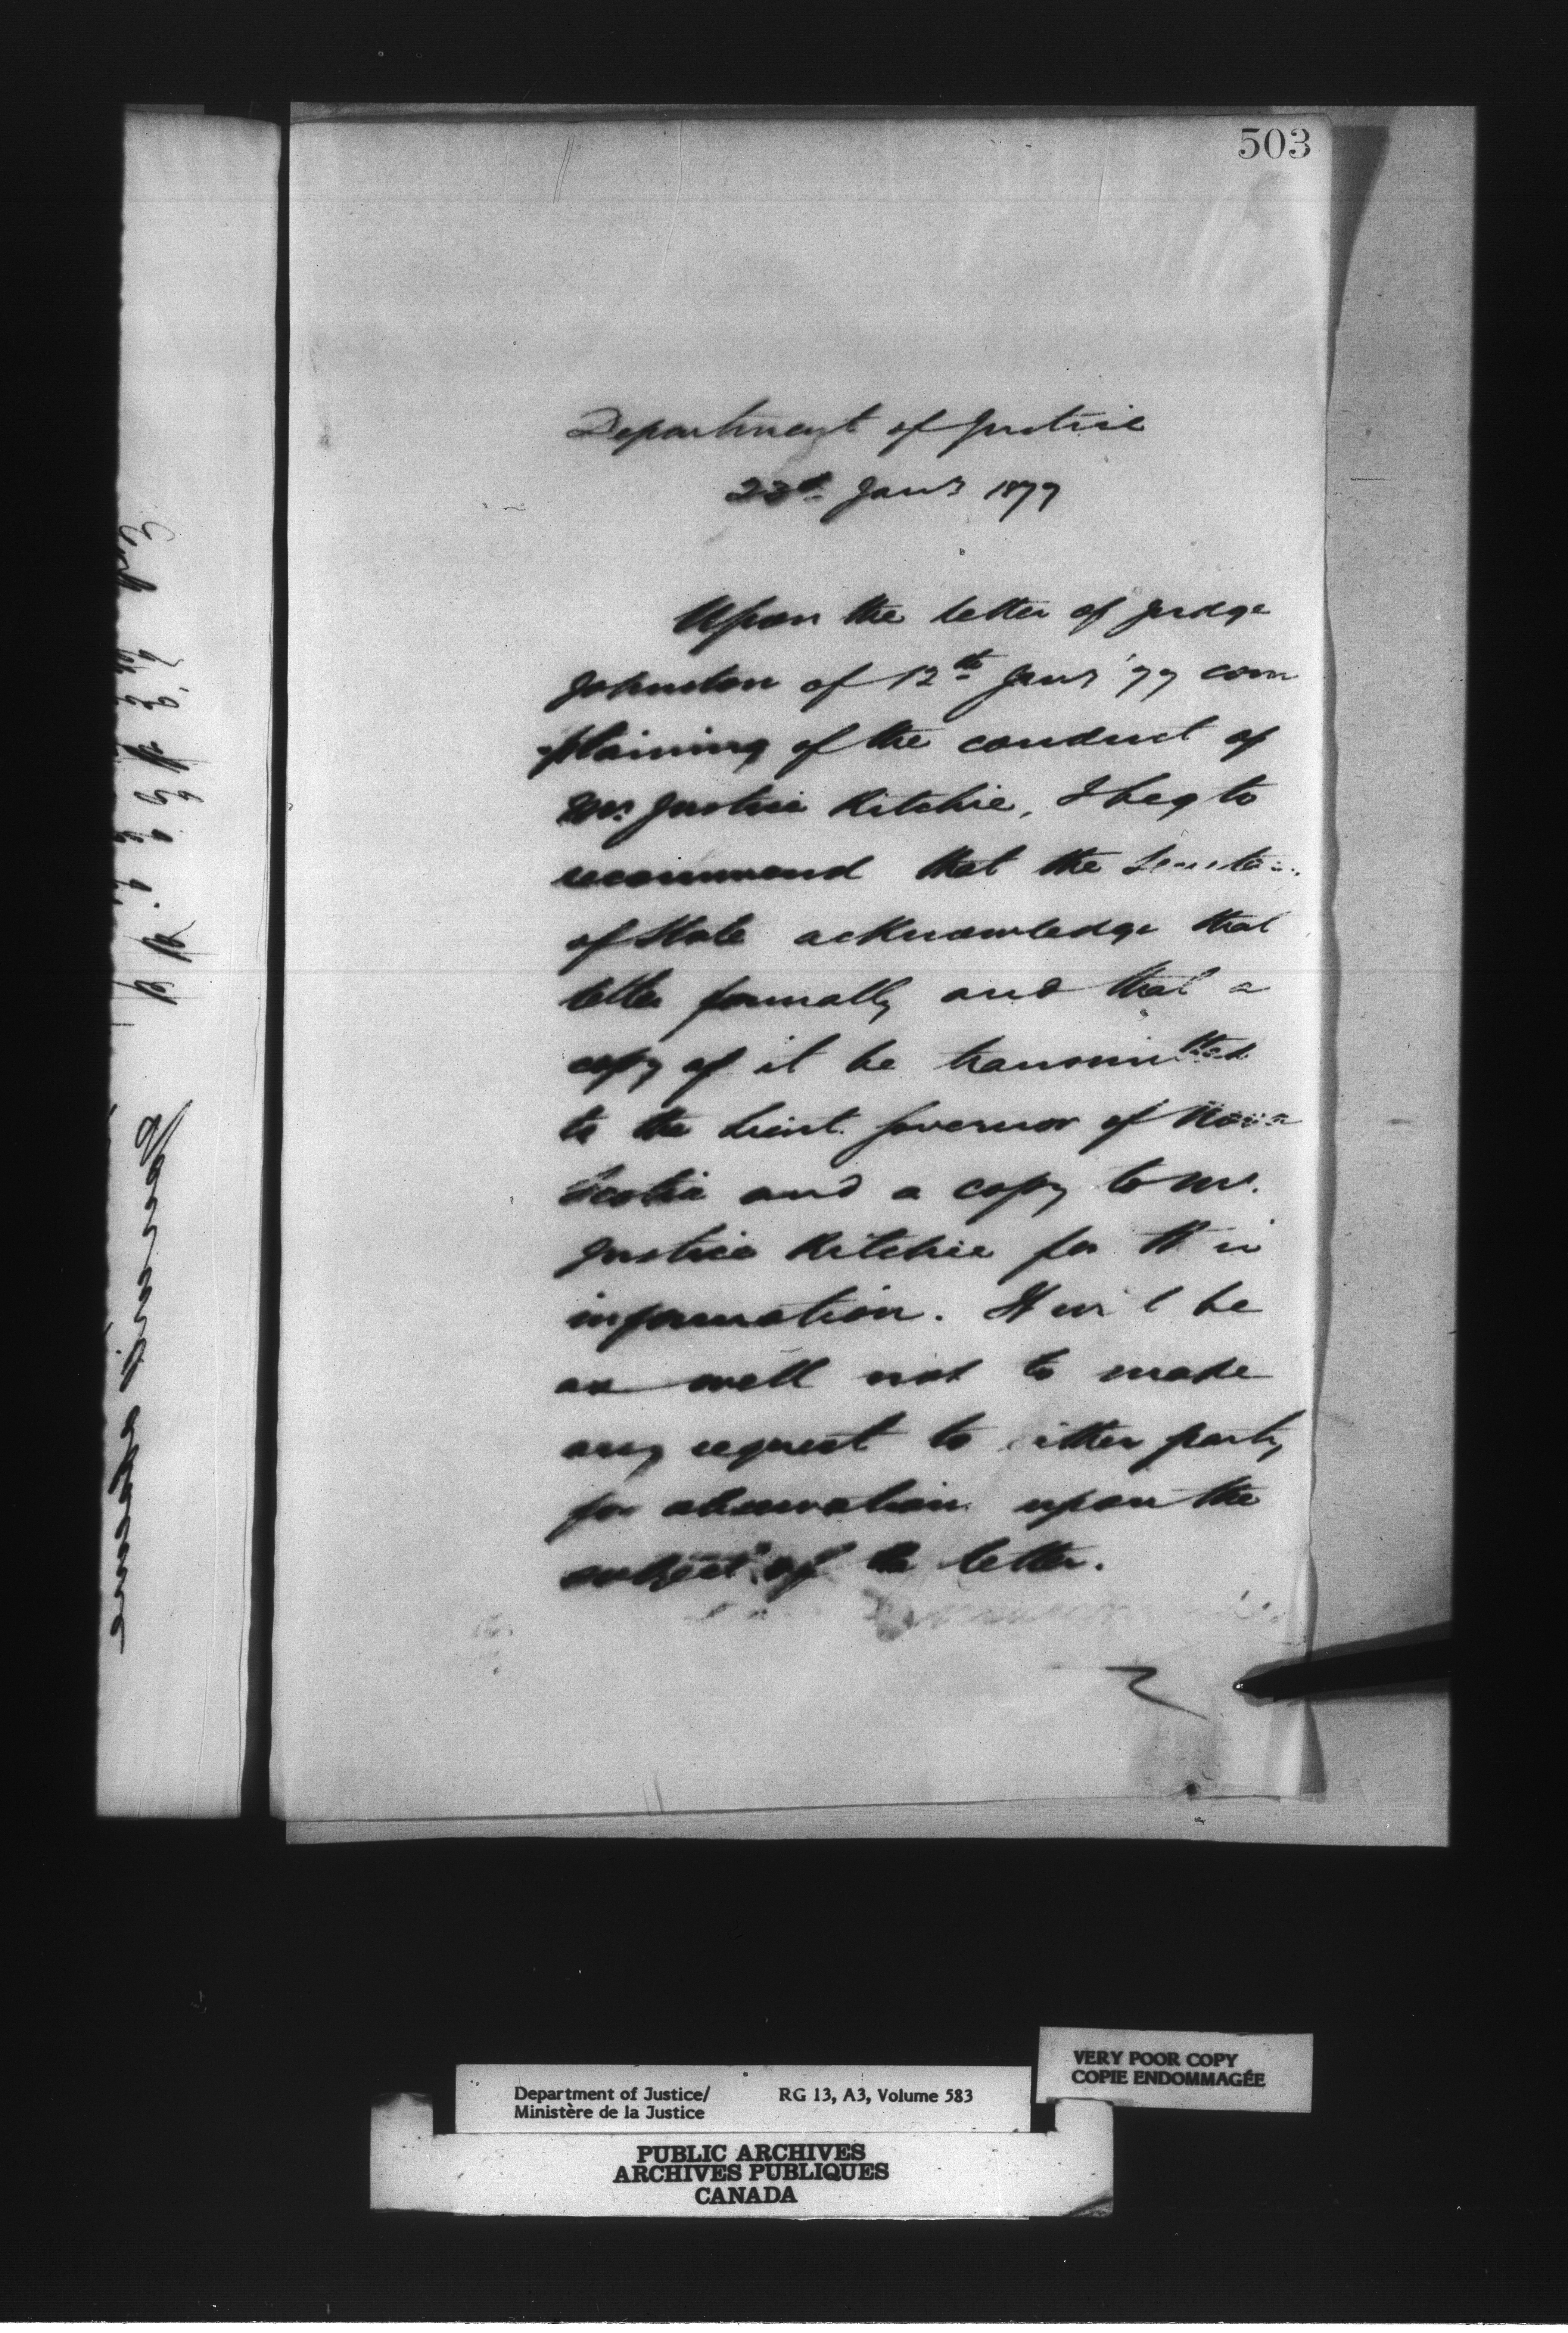 503
Department of Justice
Jany 1877
Upon the letter of Judge
Johnston of 12th Jany '77 com
-plaining of the conduct of
Mr. Justice Ritchie, I beg to
recommend that the
of State acknowledge that
letter formally and that a
copy of it be transmitted
to the Lieut. Governor of Nova
Scotia and a copy to Mr.
Justice Ritchie for
information. It will be
as well not to make
any request to either party
for observation upon the
subject of the letter.
Department of Justice/ RG 13, A3, Volume 583
Ministère de la Justice
VERY POOR COPY
COPIE ENDOMMAGÉE
PUBLIC ARCHIVES
ARCHIVES PUBLIQUES
CANADA